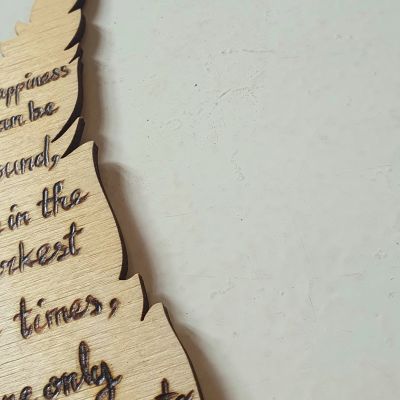 appiness
an be
ound,
in the
rkest
times,
ne only
to